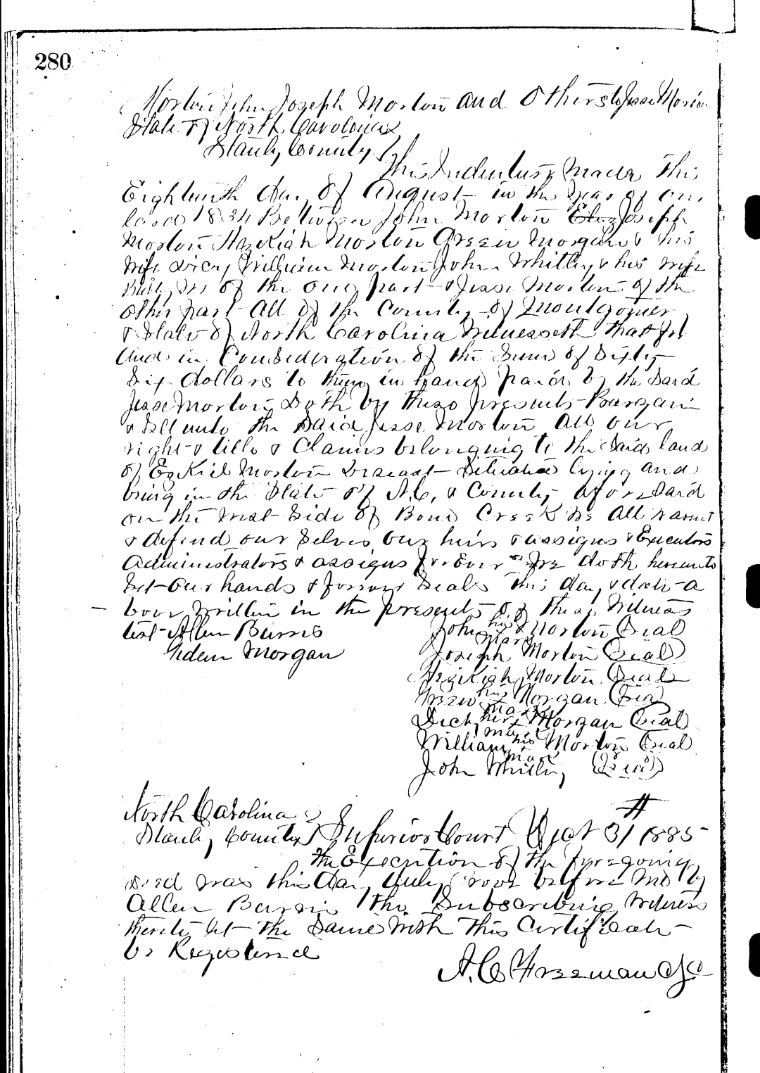 280
Morton John Joseph Morton and Others to Jesse Morton
State of North Carolina
Stanly County
This Indenture Made This
Eighteenth day of August in the year of our
lord 1834 Between John Morton Joseph
Morton Hezkiah Morton Green Morgan & his
wife Dicy William Morton John Whitley & his wife
of the one part & Jesse Morton of the
other part All of the County of Montgomery
& State of North Carolina Witnesseth that for
And in Consideration of the Sum of Sixty
Six dollars to them in hand paid by the Said
Jesse Morton Doth by these presents Bargain
& Sell unto the Said Jesse Morton all our
right & title & Claims belonging to the Said land
of Ezkiel Morton Situated lying and
being in the State of N.C. & County afore Said
on the West Side of Bone Creek We All warnt
& defend our Selves our heirs & assigns & Executors
Administrators & assigns forever We doth hereunto
Set Our hands & Seals This day & date a
bove Written in the presents of these Witness
test Allen Burris
Morgan
John his mark Morton (Seal)
Joseph Morton (Seal)
Hezkiah Morton (Seal)
Green his mark Morgan (Seal)
her mark Morgan (Seal)
William his mark Morton (Seal)
John Whitley (Seal)
North Carolina
Stanly County Superior Court Oct 31 1885
the Execution of the foregoing
deed was this day duly prove before me by
Allen Burris the Subscribing Witness
thereto let the Same With This Certificate
be Registered
A. C. Freeman